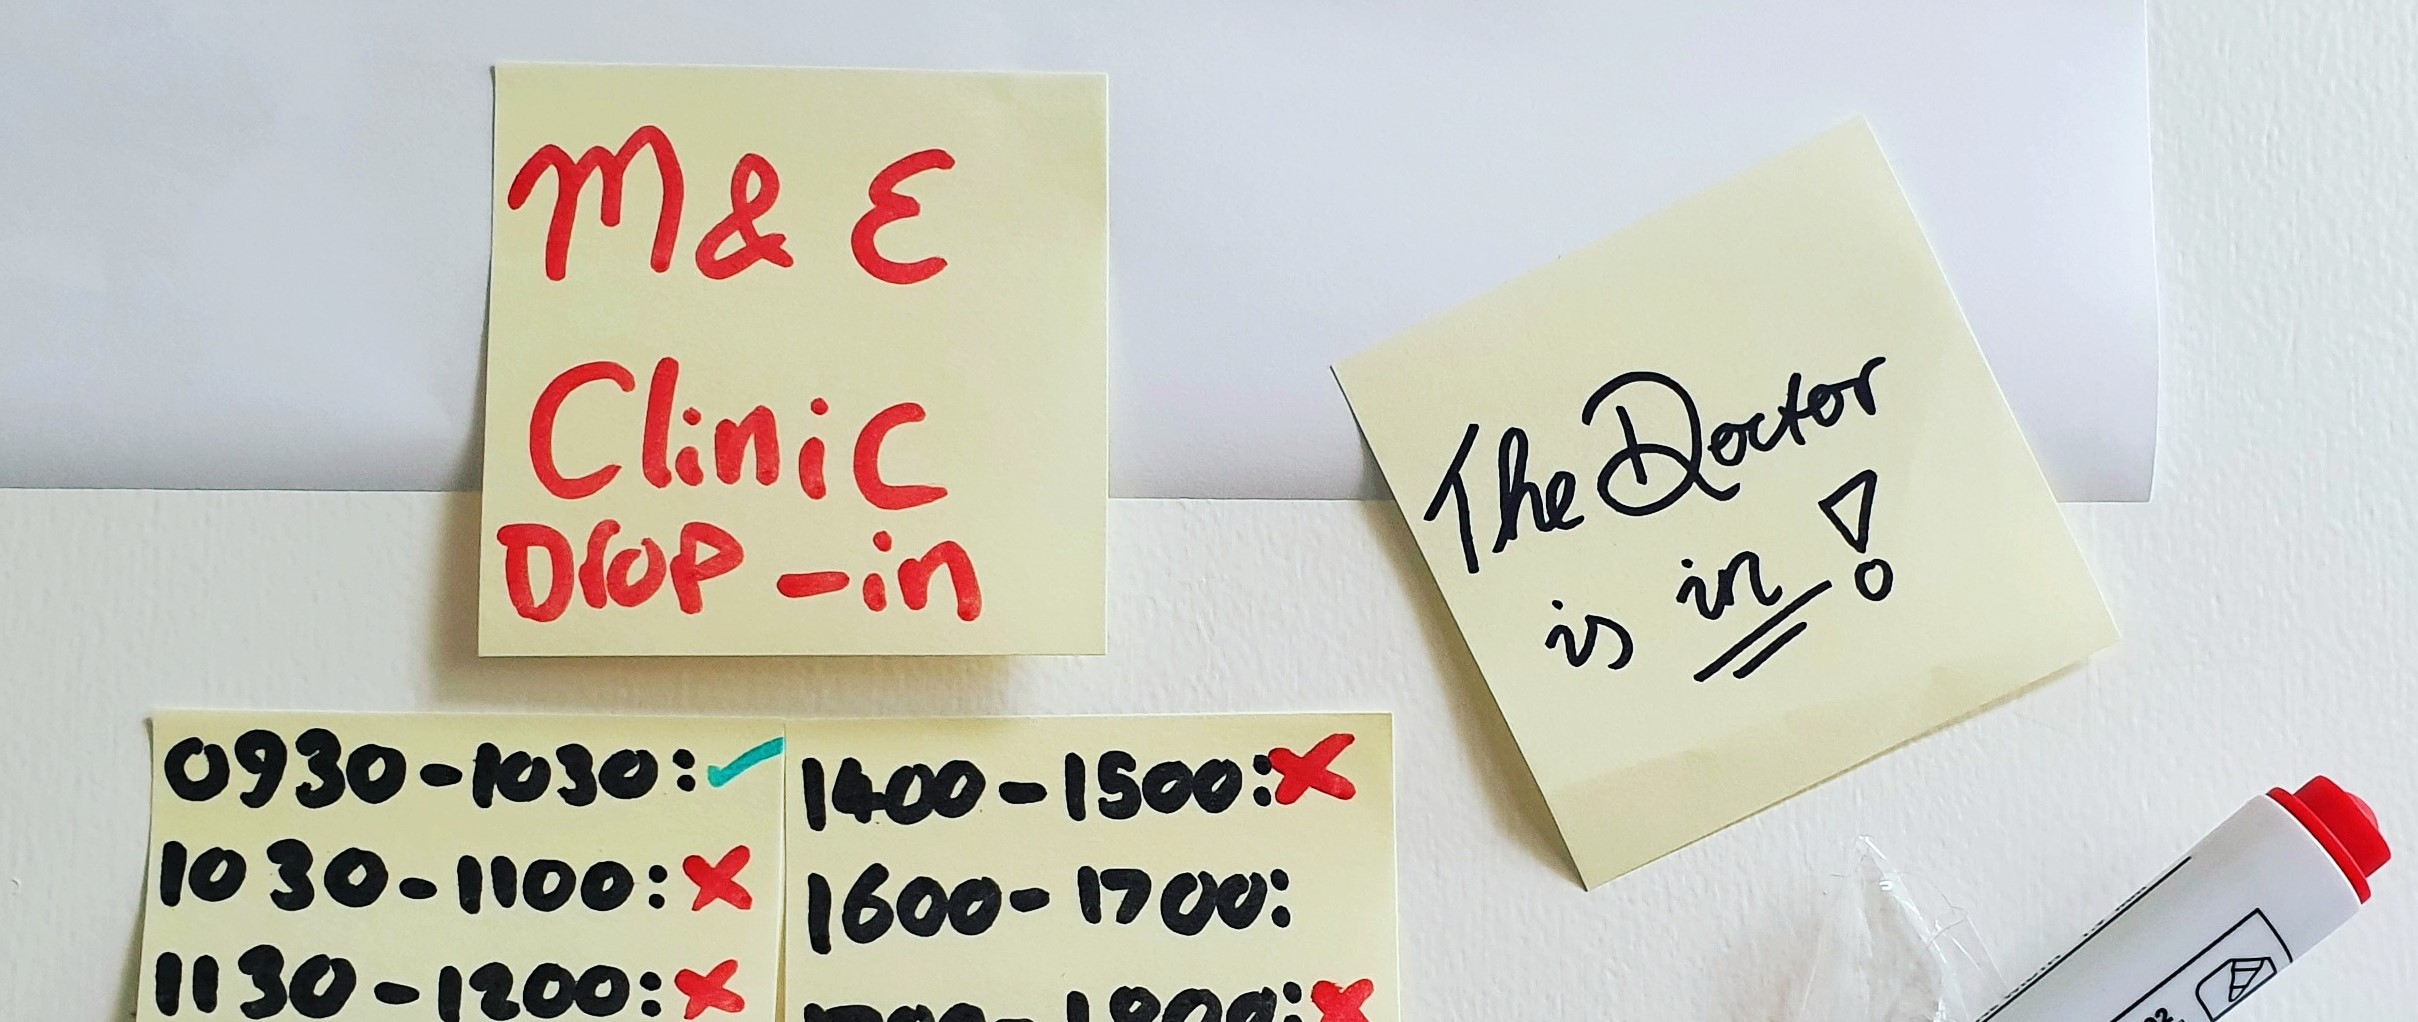 M & E
Clinic
Drop-in
The Doctor
is in!
0930-1030:✓
1030-1100:✗
1130-1200:✗
1400-1500:✗
1600-1700:
1700-1800:✗